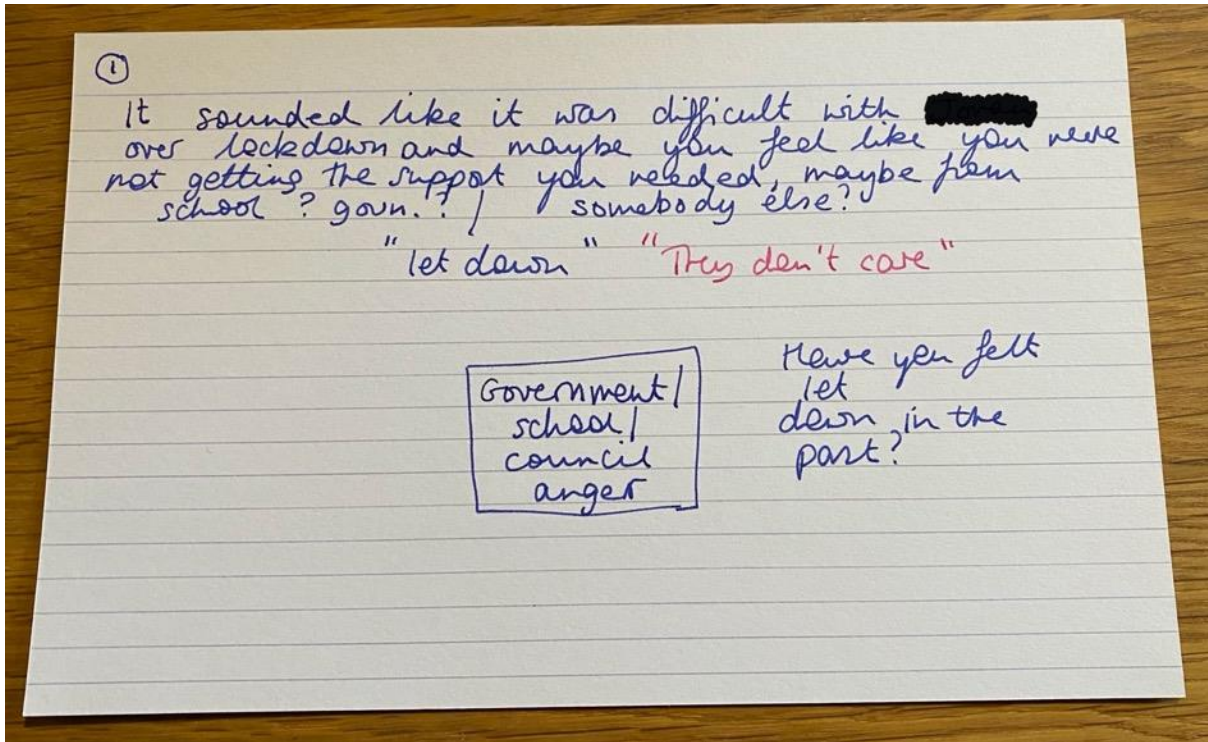 ①
It sounded like it was difficult with
over lockdown and maybe you feel like you were
not getting the support you needed, maybe from
school? govn.? / somebody else?
"let down" "They don't care"
Government/
school/
council
anger
Have you felt
let
down in the
past?